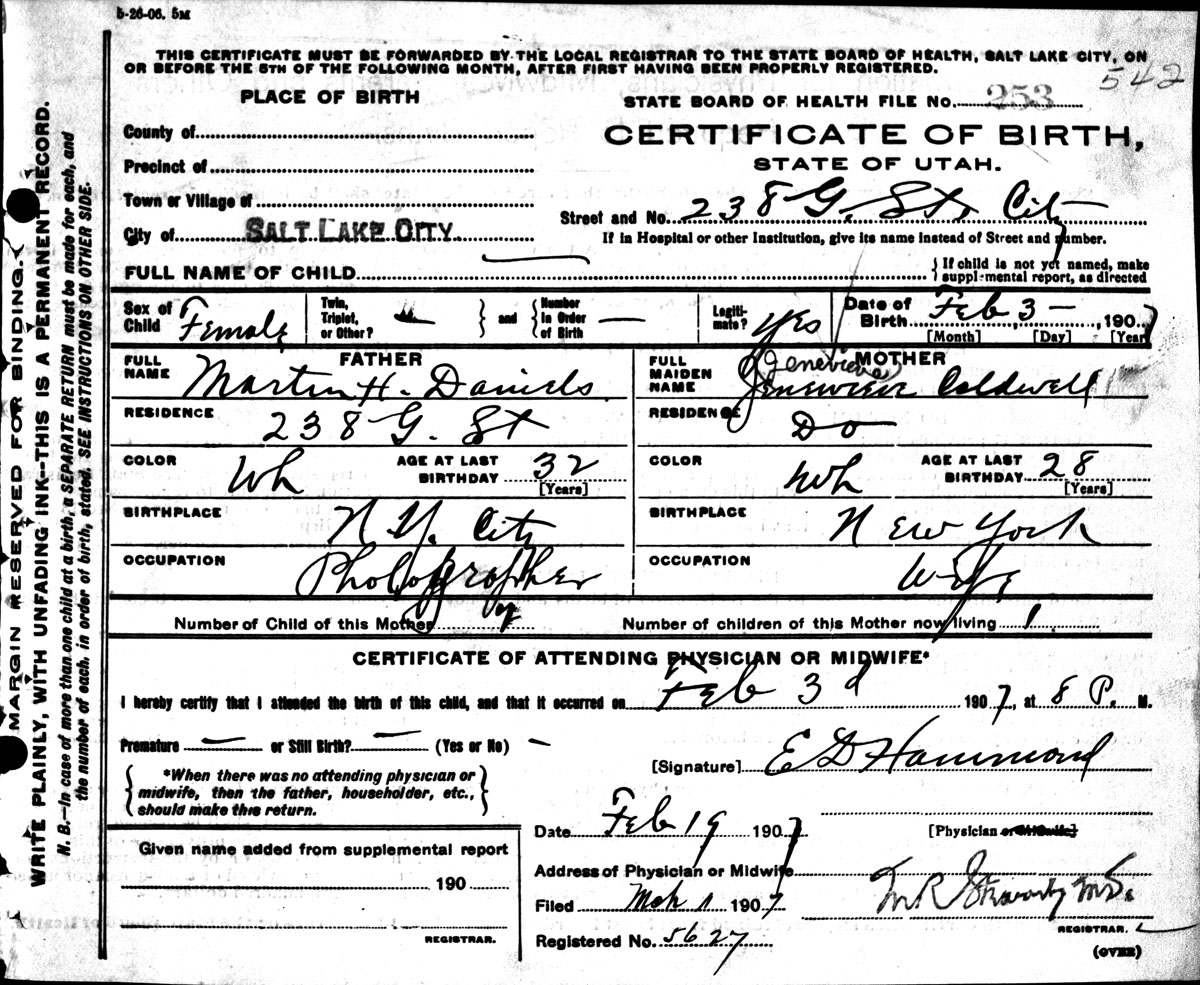 5-26-06. 5M
THIS CERTIFICATE MUST BE FORWARDED BY THE LOCAL REGISTRAR TO THE STATE BOARD OF HEALTH, SALT LAKE CITY, ON
OR BEFORE THE 5TH OF THE FOLLOWING MONTH, AFTER FIRST HAVING BEEN PROPERLY REGISTERED.
542
PLACE OF BIRTH
STATE BOARD OF HEALTH FILE NO. 253
County of
CERTIFICATE OF BIRTH,
Precinct of
STATE OF UTAH.
Town or Village of
Street and No. 238 G. St. City
City of SALT LAKE CITY
If in Hospital or other Institution, give its name instead of Street and number.
FULL NAME OF CHILD
If child is not yet named, make
supplemental report, as directed
Sex of Child Female
Twin, Triplet, or Other?
and
Number in Order of Birth —
Legitimate? Yes
Date of Birth Feb 3 — , 1907
[Month] [Day] [Year]
FATHER
FULL NAME Martin H. Daniels
MOTHER
FULL MAIDEN NAME Genevieve Coldwell
Genevieve
RESIDENCE 238 G. St
RESIDENCE Do
COLOR Wh AGE AT LAST BIRTHDAY 32 [Years]
COLOR Wh AGE AT LAST BIRTHDAY 28 [Years]
BIRTHPLACE N Y. City
BIRTHPLACE New York
OCCUPATION Photographer
OCCUPATION Wife
Number of Child of this Mother
Number of children of this Mother now living 1.
CERTIFICATE OF ATTENDING PHYSICIAN OR MIDWIFE*
I hereby certify that I attended the birth of this child, and that it occurred on Feb 3d 1907, at 8 P. M.
Premature — or Still Birth? — (Yes or No) —
*When there was no attending physician or
midwife, then the father, householder, etc.,
should make this return.
[Signature] E D Hammond
Date Feb 19 1907
[Physician or Midwife]
Given name added from supplemental report
190
REGISTRAR.
Address of Physician or Midwife
Filed Mch 1 1907
M.D.
REGISTRAR.
Registered No. 5627
(OVER)
MARGIN RESERVED FOR BINDING.
WRITE PLAINLY, WITH UNFADING INK--THIS IS A PERMANENT RECORD.
N. B.—In case of more than one child at a birth, a SEPARATE RETURN must be made for each, and
the number of each, in order of birth, stated. SEE INSTRUCTIONS ON OTHER SIDE.